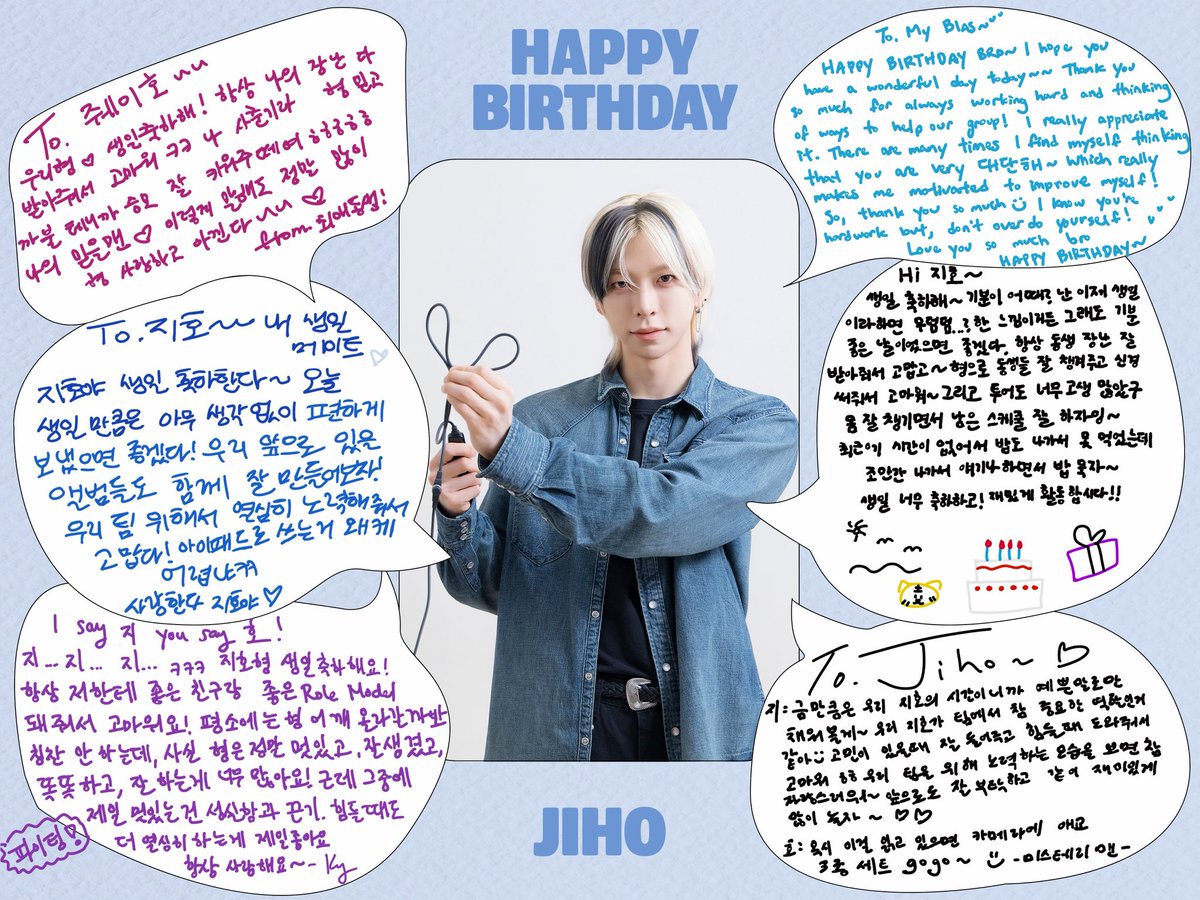 HAPPY
BIRTHDAY
To. 줴이호 ~~
우리형♡ 생일축하해! 항상 나의 장난 다
받아줘서 고마워 ㅋㅋ 나 사춘기라 형 믿고
까불 테니까 승모 잘 키워주떼여 ㅎㅎㅎㅎㅎ
나의 믿을맨♡ 이렇게 말해도 정말 많이
형 사랑하고 아낀다 ~~♡
from 최애동생!
To. My Bias~
HAPPY BIRTHDAY BRO~ I hope you
have a wonderful day today~~ Thank you
so much for always working hard and thinking
of ways to help our group! I really appreciate
it. There are many times I find myself thinking
that you are very 대단해~ which really
makes me motivated to improve myself!
So, thank you so much I know you're
hardwork but, don't over do yourself!
Love you so much bro
HAPPY BIRTHDAY~
To. 지호~~ 내 생일
메이트
지호야 생일 축하한다~ 오늘
생일 만큼은 아무 생각 없이 편하게
보냈으면 좋겠다! 우리 앞으로 있을
앨범들도 함께 잘 만들어보자!
우리 팀 위해서 열심히 노력해줘서
고맙다! 아이패드로 쓰는거 왜케
어렵냐ㅋㅋ
사랑한다 지호야♡
Hi 지호~
생일 축하해~ 기분이 어때? 난 이제 생일
이라하면 무덤덤..? 한 느낌이거든 그래도 기분
좋은 날이었으면 좋겠다. 항상 동생 장난 잘
받아줘서 고맙고~ 형으로 동생들 잘 챙겨주고 신경
써줘서 고마워~ 그리고 투어도 너무 고생 많았구
몸 잘 챙기면서 남은 스케줄 잘 하자잉~
최근에 시간이 없어서 밥도 나가서 못 먹었는데
조만간 나가서 얘기나 하면서 밥 묵자~
생일 너무 축하하고! 재밌게 활동합시다!!
I say 지 you say 호!
지... 지... 지... ㅋㅋㅋ 지호형 생일축하해요!
항상 저한테 좋은 친구랑 좋은 Role Model
돼줘서 고마워요! 평소에는 형 어깨 올라갈까봐
칭찬 안 하는데, 사실 형은 정말 멋있고, 잘생겼고,
똑똑하고, 잘 하는게 너무 많아요! 근데 그중에
제일 멋있는건 성실함과 끈기. 힘들 때도
더 열심히 하는게 제일좋아요
항상 사랑해요~ - Ky
파이팅!
To. Jiho~♡
지: 금만큼은 우리 지호의 시간이니까 예쁜말로만
채워볼게~ 우리 지호가 팀에서 참 중요한 역할인거
같아 고민이 있을때 잘 들어주고 힘들때 도와줘서
고마워 ㅎㅎ 우리 팀을 위해 노력하는 모습을 보면 참
자랑스러워~ 앞으로도 잘 부탁하고 같이 재미있게
많이 놀자~ ♡♡
호: 혹시 이걸 읽고 있으면 카메라에 애교
3종 세트 gogo~ -미스테리 맨-
JIHO